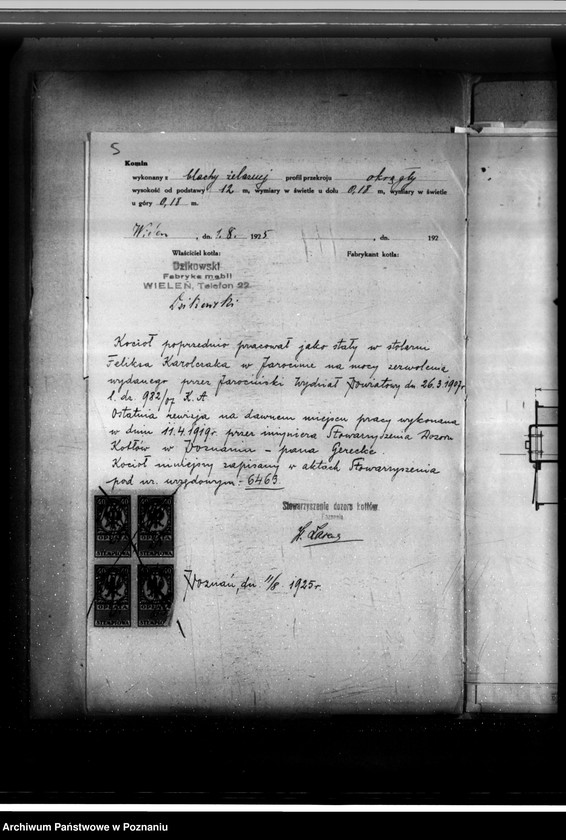 5
Komin
wykonany z blachy żelaznej profil przekroju okrągły
wysokość od podstawy 12 m, wymiary w świetle u dołu 0,18 m, wymiary w świetle
u góry 0,18 m.
Wieleń, dn. 1.8. 1925 , dn. 192
Właściciel kotła: Fabrykant kotła:
Dzikowski
Fabryka mebli
WIELEŃ, Telefon 22
Dzikowski
Kocioł poprzednio pracował jako stały w stolarni
Feliksa Karolczaka w Jarocinie na mocy zezwolenia
wydanego przez Jarociński Wydział Powiatowy dn 26.3.1907r.
l. dz. 982/07 K.A.
Ostatnia rewizja na dawnem miejscu pracy wykonana
w dniu 11.4.1919r. przez inżyniera Stowarzyszenia Dozoru
Kotłów w Poznaniu – pana Gerecke.
Kocioł niniejszy zapisany w aktach Stowarzyszenia
pod nr. urzędowym: - 6463
Stowarzyszenie dozoru kotłów
Poznania
OPŁATA OPŁATA
STEMPLOWA STEMPLOWA
OPŁATA OPŁATA
STEMPLOWA STEMPLOWA
Poznań, dn 11/8 1925r.
Archiwum Państwowe w Poznaniu